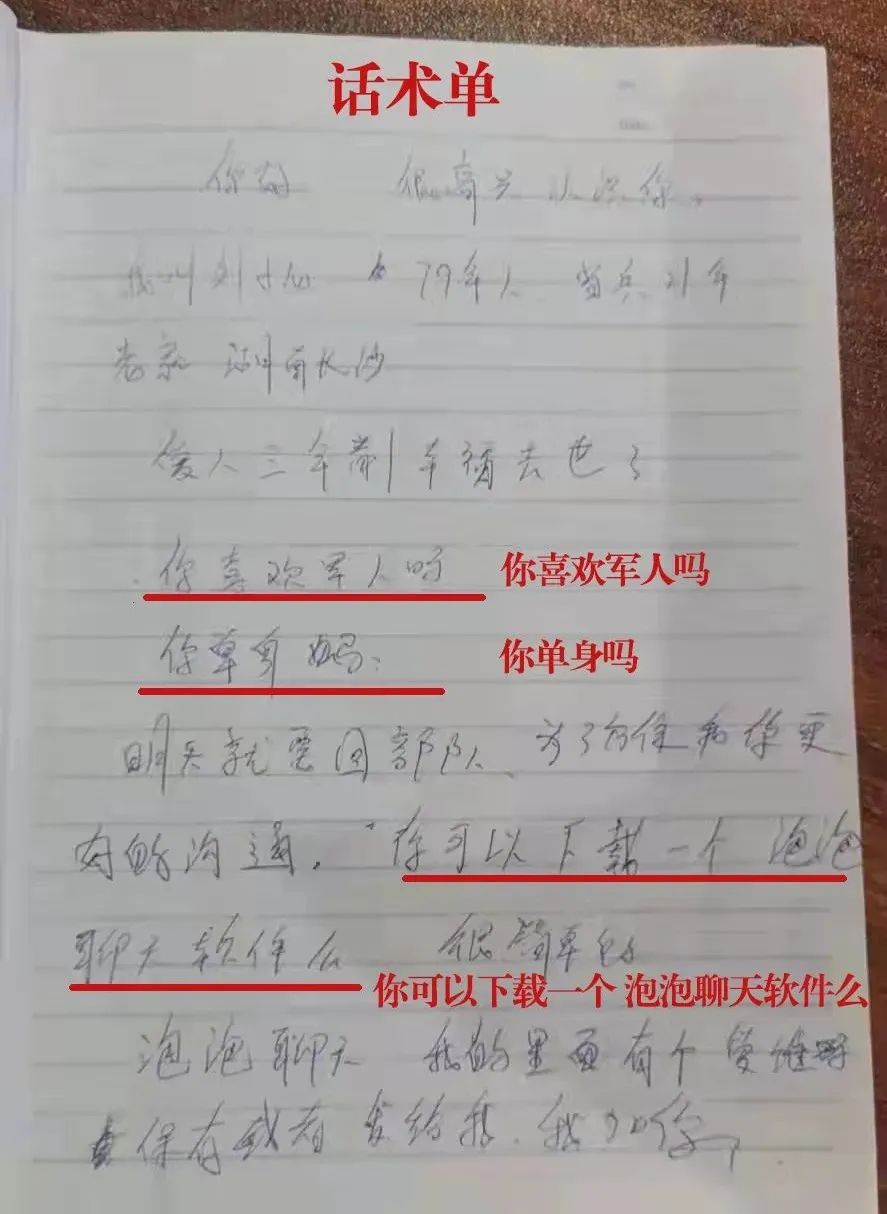 话术单
你好 很高兴认识你,
我叫刘 79年人 当兵21年
老家 湖南长沙
爱人三年前车祸去世了
你喜欢军人吗 你喜欢军人吗
你单身吗 你单身吗
明天就要回部队、为了方便和你更
好的沟通. 你可以下载一个 泡泡
聊天软件么 很简单的
你可以下载一个 泡泡聊天软件么
泡泡聊天 我的里面有个
保存或者发给我. 我加你